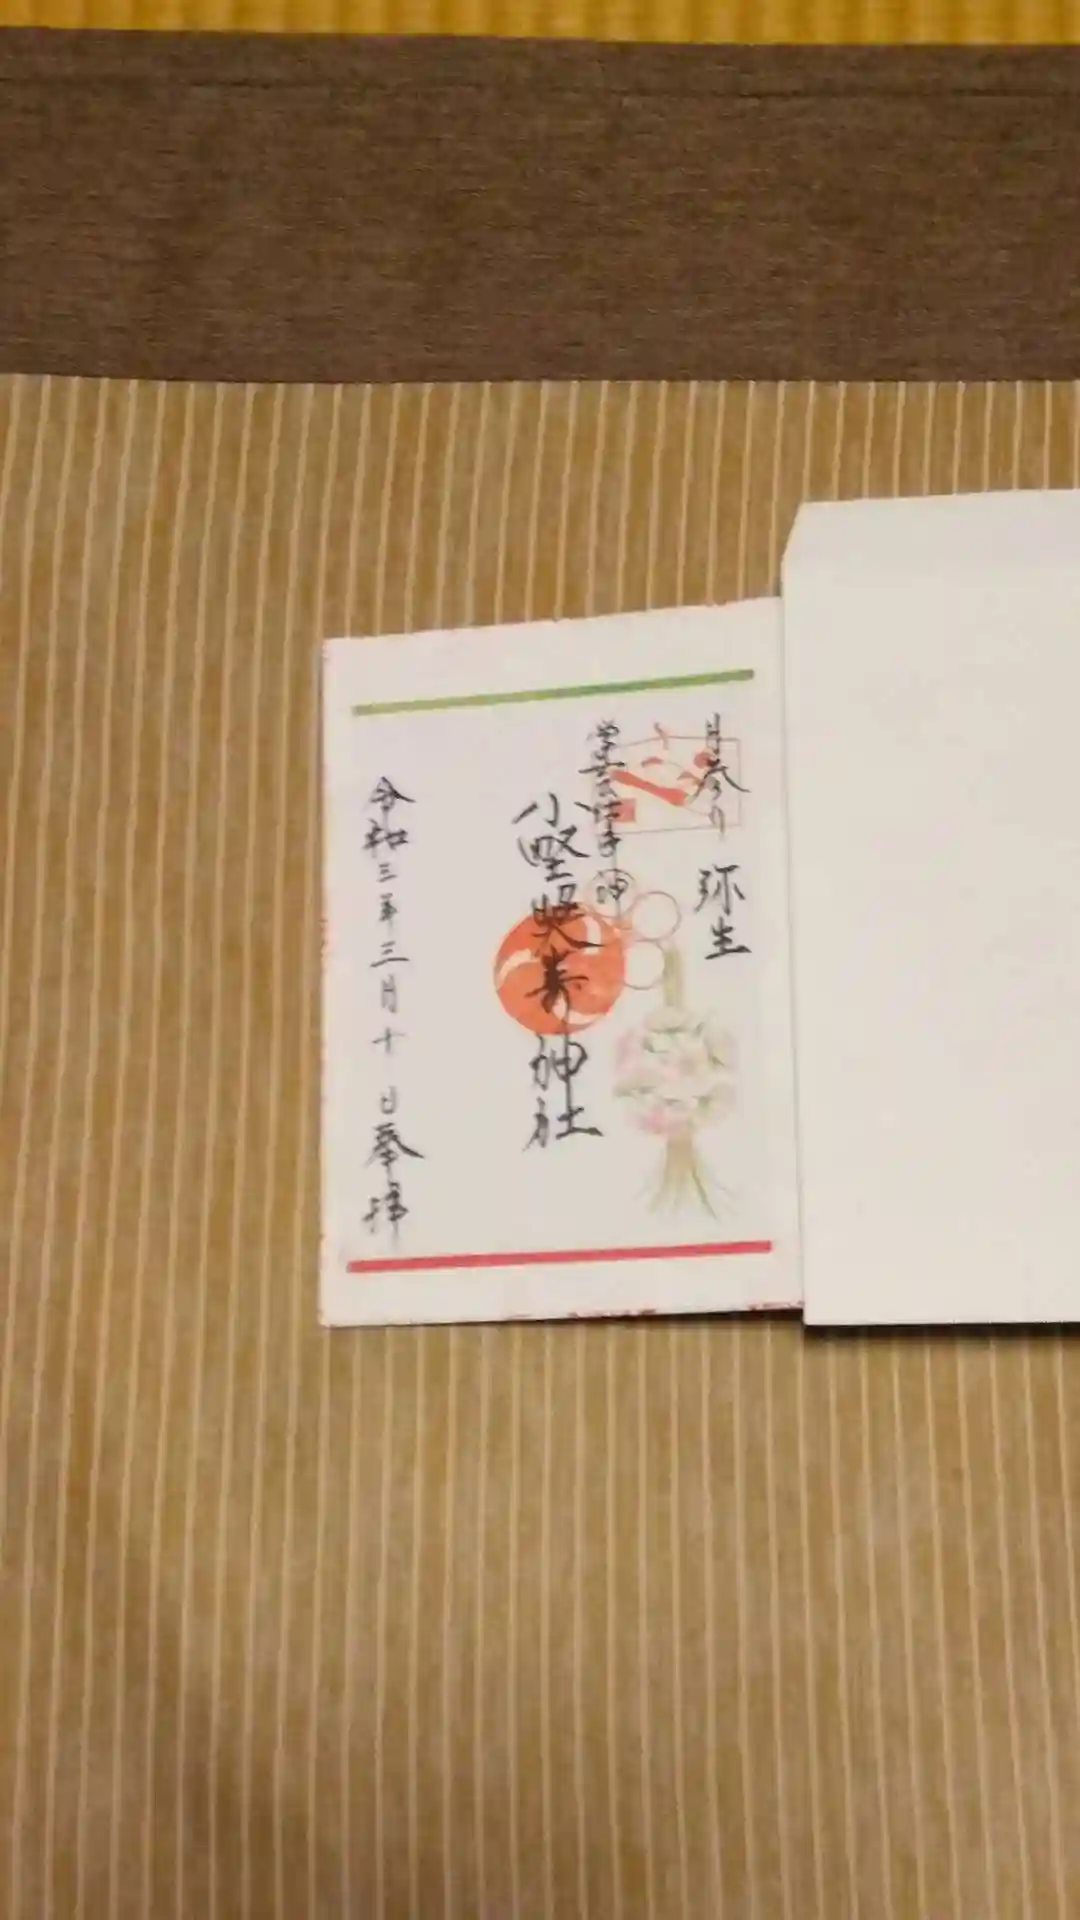 月参り 弥生
小野照崎神社
令和三年三月十日奉拝